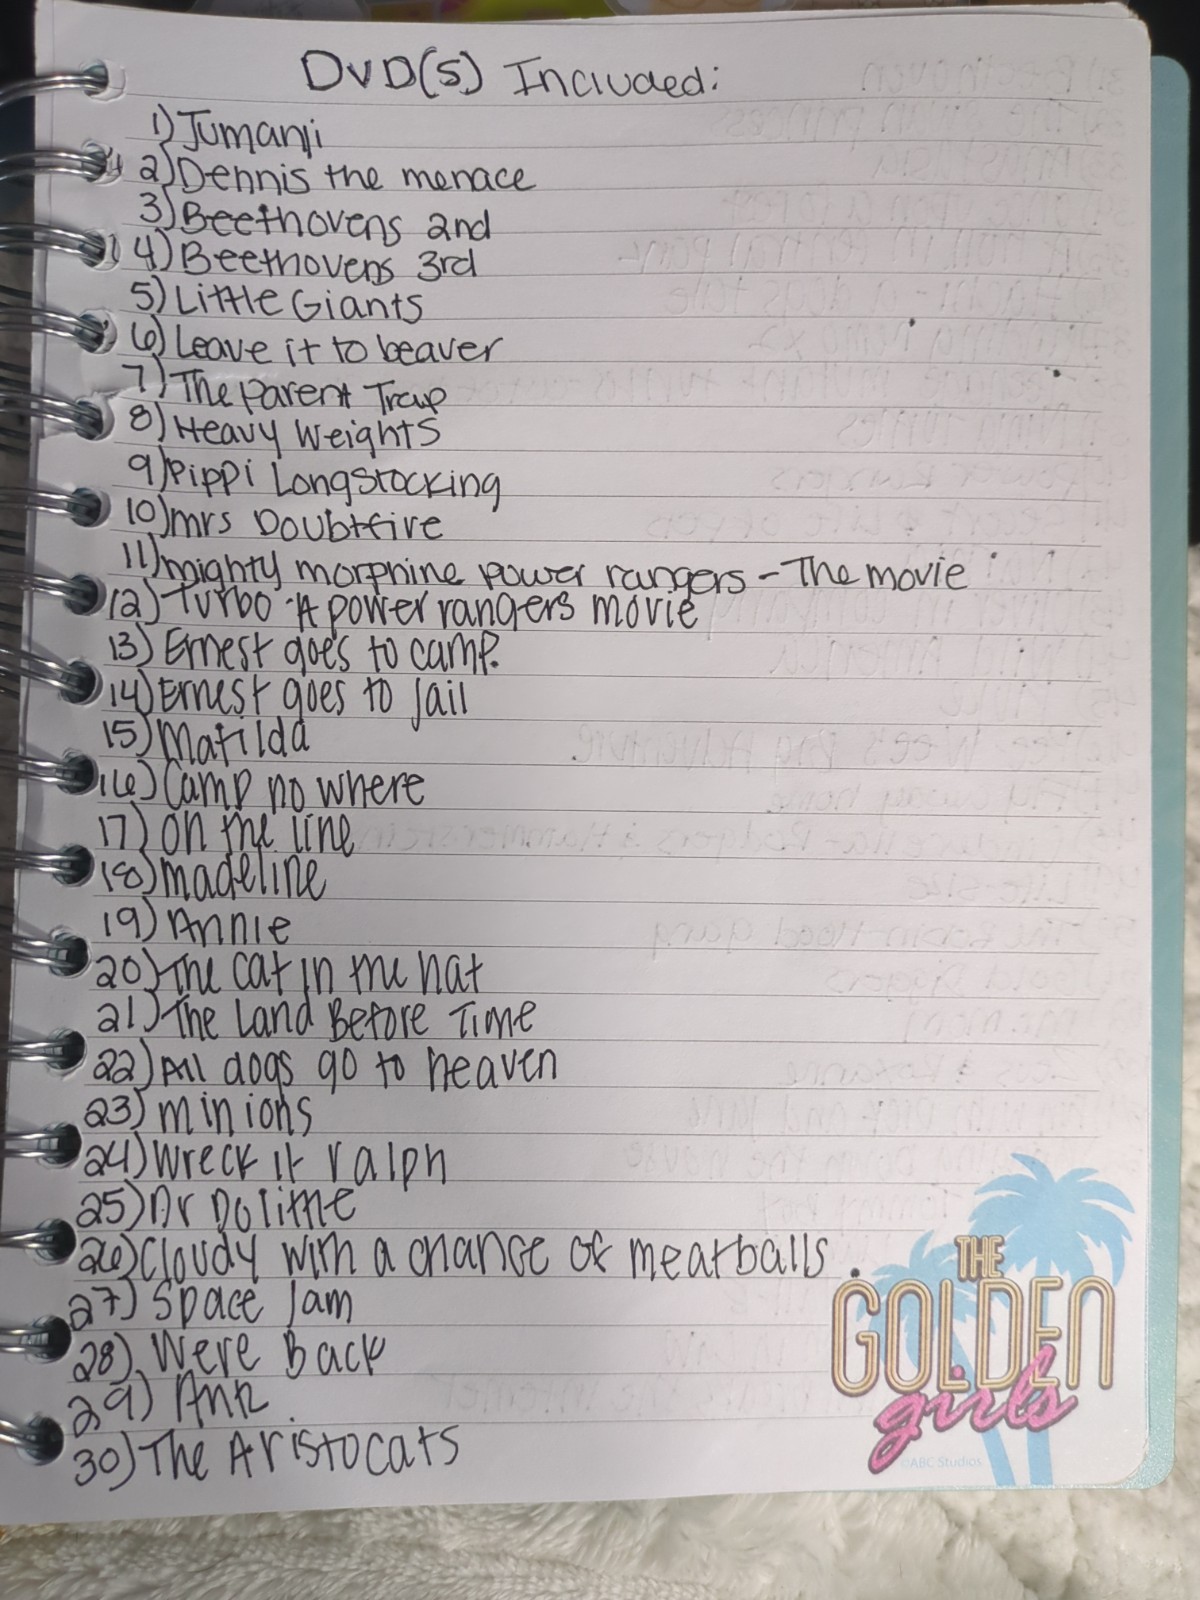 DVD(s) Included:
1) Jumanji
2) Dennis the menace
3) Beethovens 2nd
4) Beethovens 3rd
5) Little Giants
6) Leave it to beaver
7) The Parent Trap
8) Heavy Weights
9) Pippi Longstocking
10) mrs Doubtfire
11) mighty morphine power rangers - The movie
12) Turbo - A power rangers movie
13) Ernest goes to camp.
14) Ernest goes to Jail
15) Matilda
16) Camp no where
17) on the line
18) madeline
19) Annie
20) The cat in the hat
21) The Land Before Time
22) All dogs go to heaven
23) minions
24) Wreck it ralph
25) Dr Dolittle
26) Cloudy with a chance of meatballs.
27) Space Jam
28) Were Back
29) Antz
30) The Aristocats
THE
GOLDEN
girls
©ABC Studios